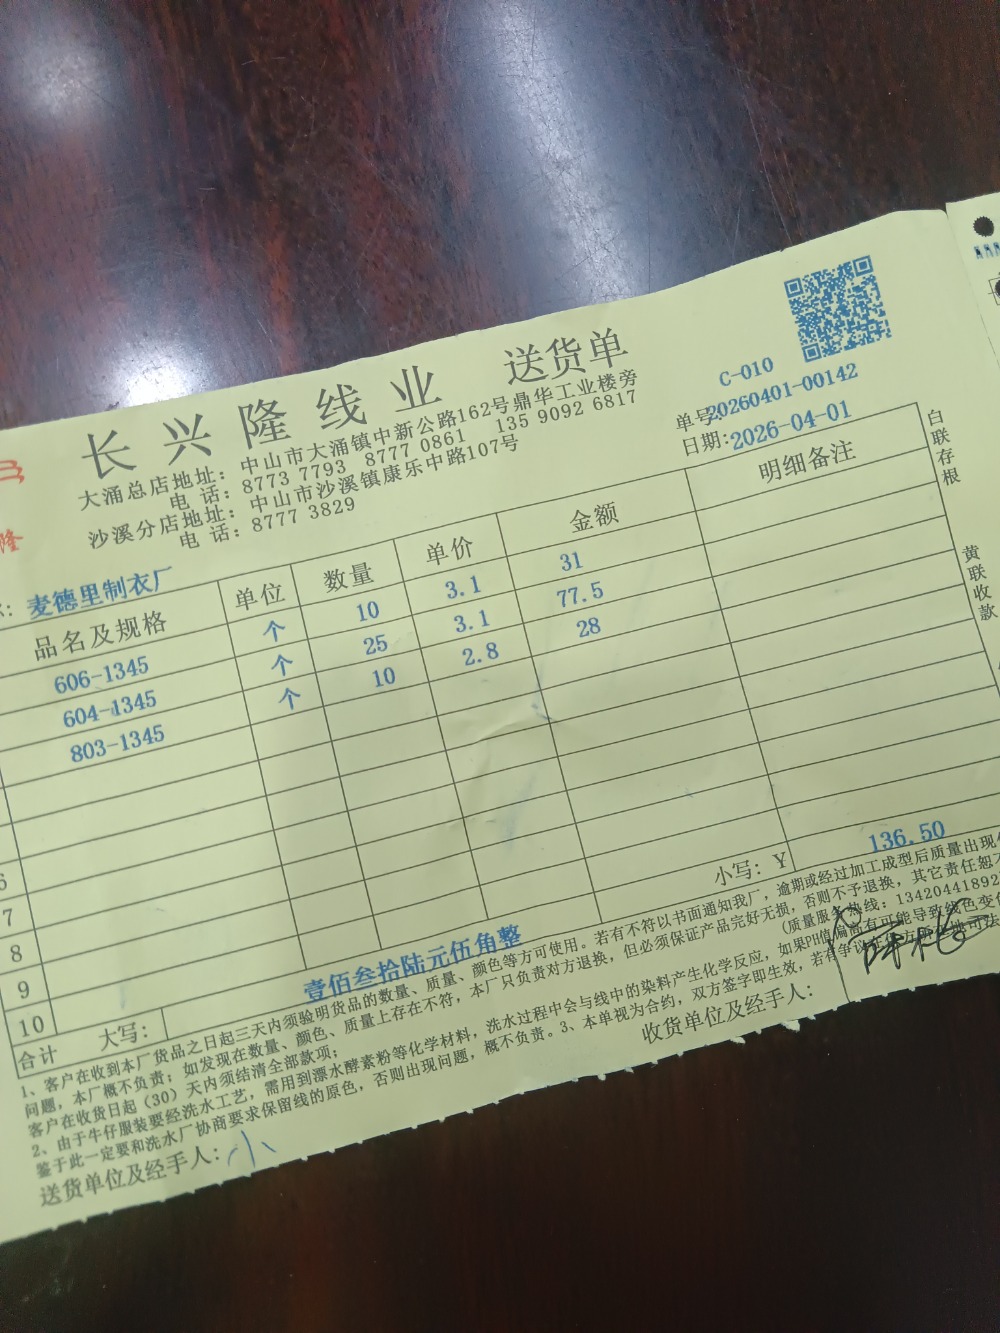 长兴隆线业 送货单
大涌总店地址：中山市大涌镇中新公路162号鼎华工业楼旁
电 话：8773 7793 8777 0861 135 9092 6817
沙溪分店地址：中山市沙溪镇康乐中路107号
电 话：8777 3829
C-010
单号20260401-00142
日期：2026-04-01
：麦德里制衣厂
品名及规格 单位 数量 单价 金额 明细备注
606-1345 个 10 3.1 31
604-1345 个 25 3.1 77.5
803-1345 个 10 2.8 28
6
7
8
9
10
合计 大写： 壹佰叁拾陆元伍角整 小写：Y 136.50
1、客户在收到本厂货品之日起三天内须验明货品的数量、质量、颜色等方可使用。若有不符以书面通知我厂，逾期或经过加工成型后质量出现
问题，本厂概不负责；如发现在数量、颜色、质量上存在不符，本厂只负责对方退换，但必须保证产品完好无损，否则不予退换，其它责任恕不
客户在收货日起（30）天内须结清全部款项； （质量服务热线：1342044189
2、由于牛仔服装要经洗水工艺，需用到漂水酵素粉等化学材料，洗水过程中会与线中的染料产生化学反应，如果PH值偏高有可能导致线色变
鉴于此一定要和洗水厂协商要求保留线的原色，否则出现问题，概不负责。3、本单视为合约，双方签字即生效，若有争议
送货单位及经手人：小
收货单位及经手人：
白联存根
黄联收款
隆